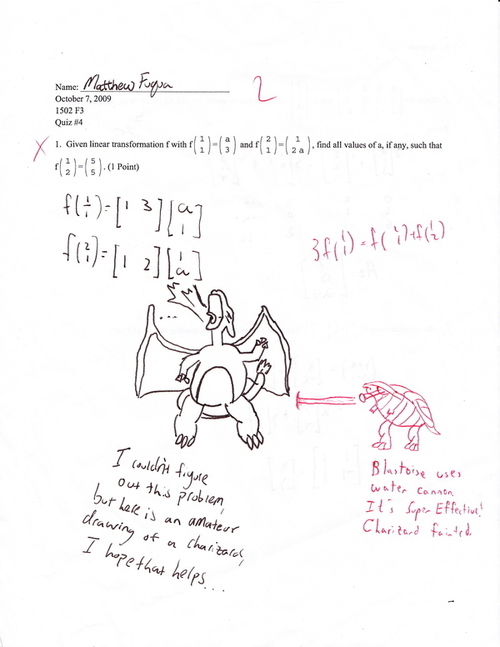 Name: Matthew Fuqua
2
October 7, 2009
1502 F3
Quiz #4
X 1. Given linear transformation f with f(1 1)=(a 3) and f(2 1)=(1 2 a), find all values of a, if any, such that
f(1 2)=(5 5). (1 Point)
f(1 1)=[1 3][a 1]
3f(1 1)=f(2 1)+f(1 2)
f(2 1)=[1 2][1 a]
...
I couldn't figure
out this problem,
but here is an amateur
drawing of a charizard,
I hope that helps...
Blastoise uses
water cannon
It's Super Effective!
Charizard fainted.